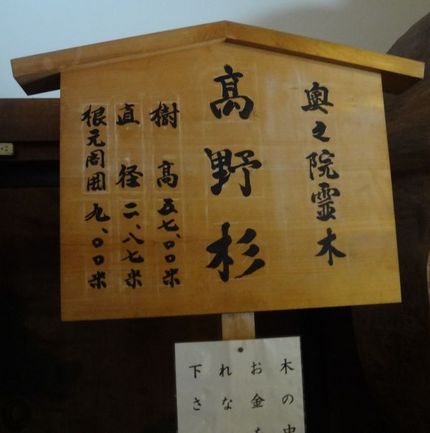 奥々院霊木
高野杉
樹高五七.〇〇米
直径二.八七米
根元周囲九.〇〇米
木の中
お金を
れな
下さ